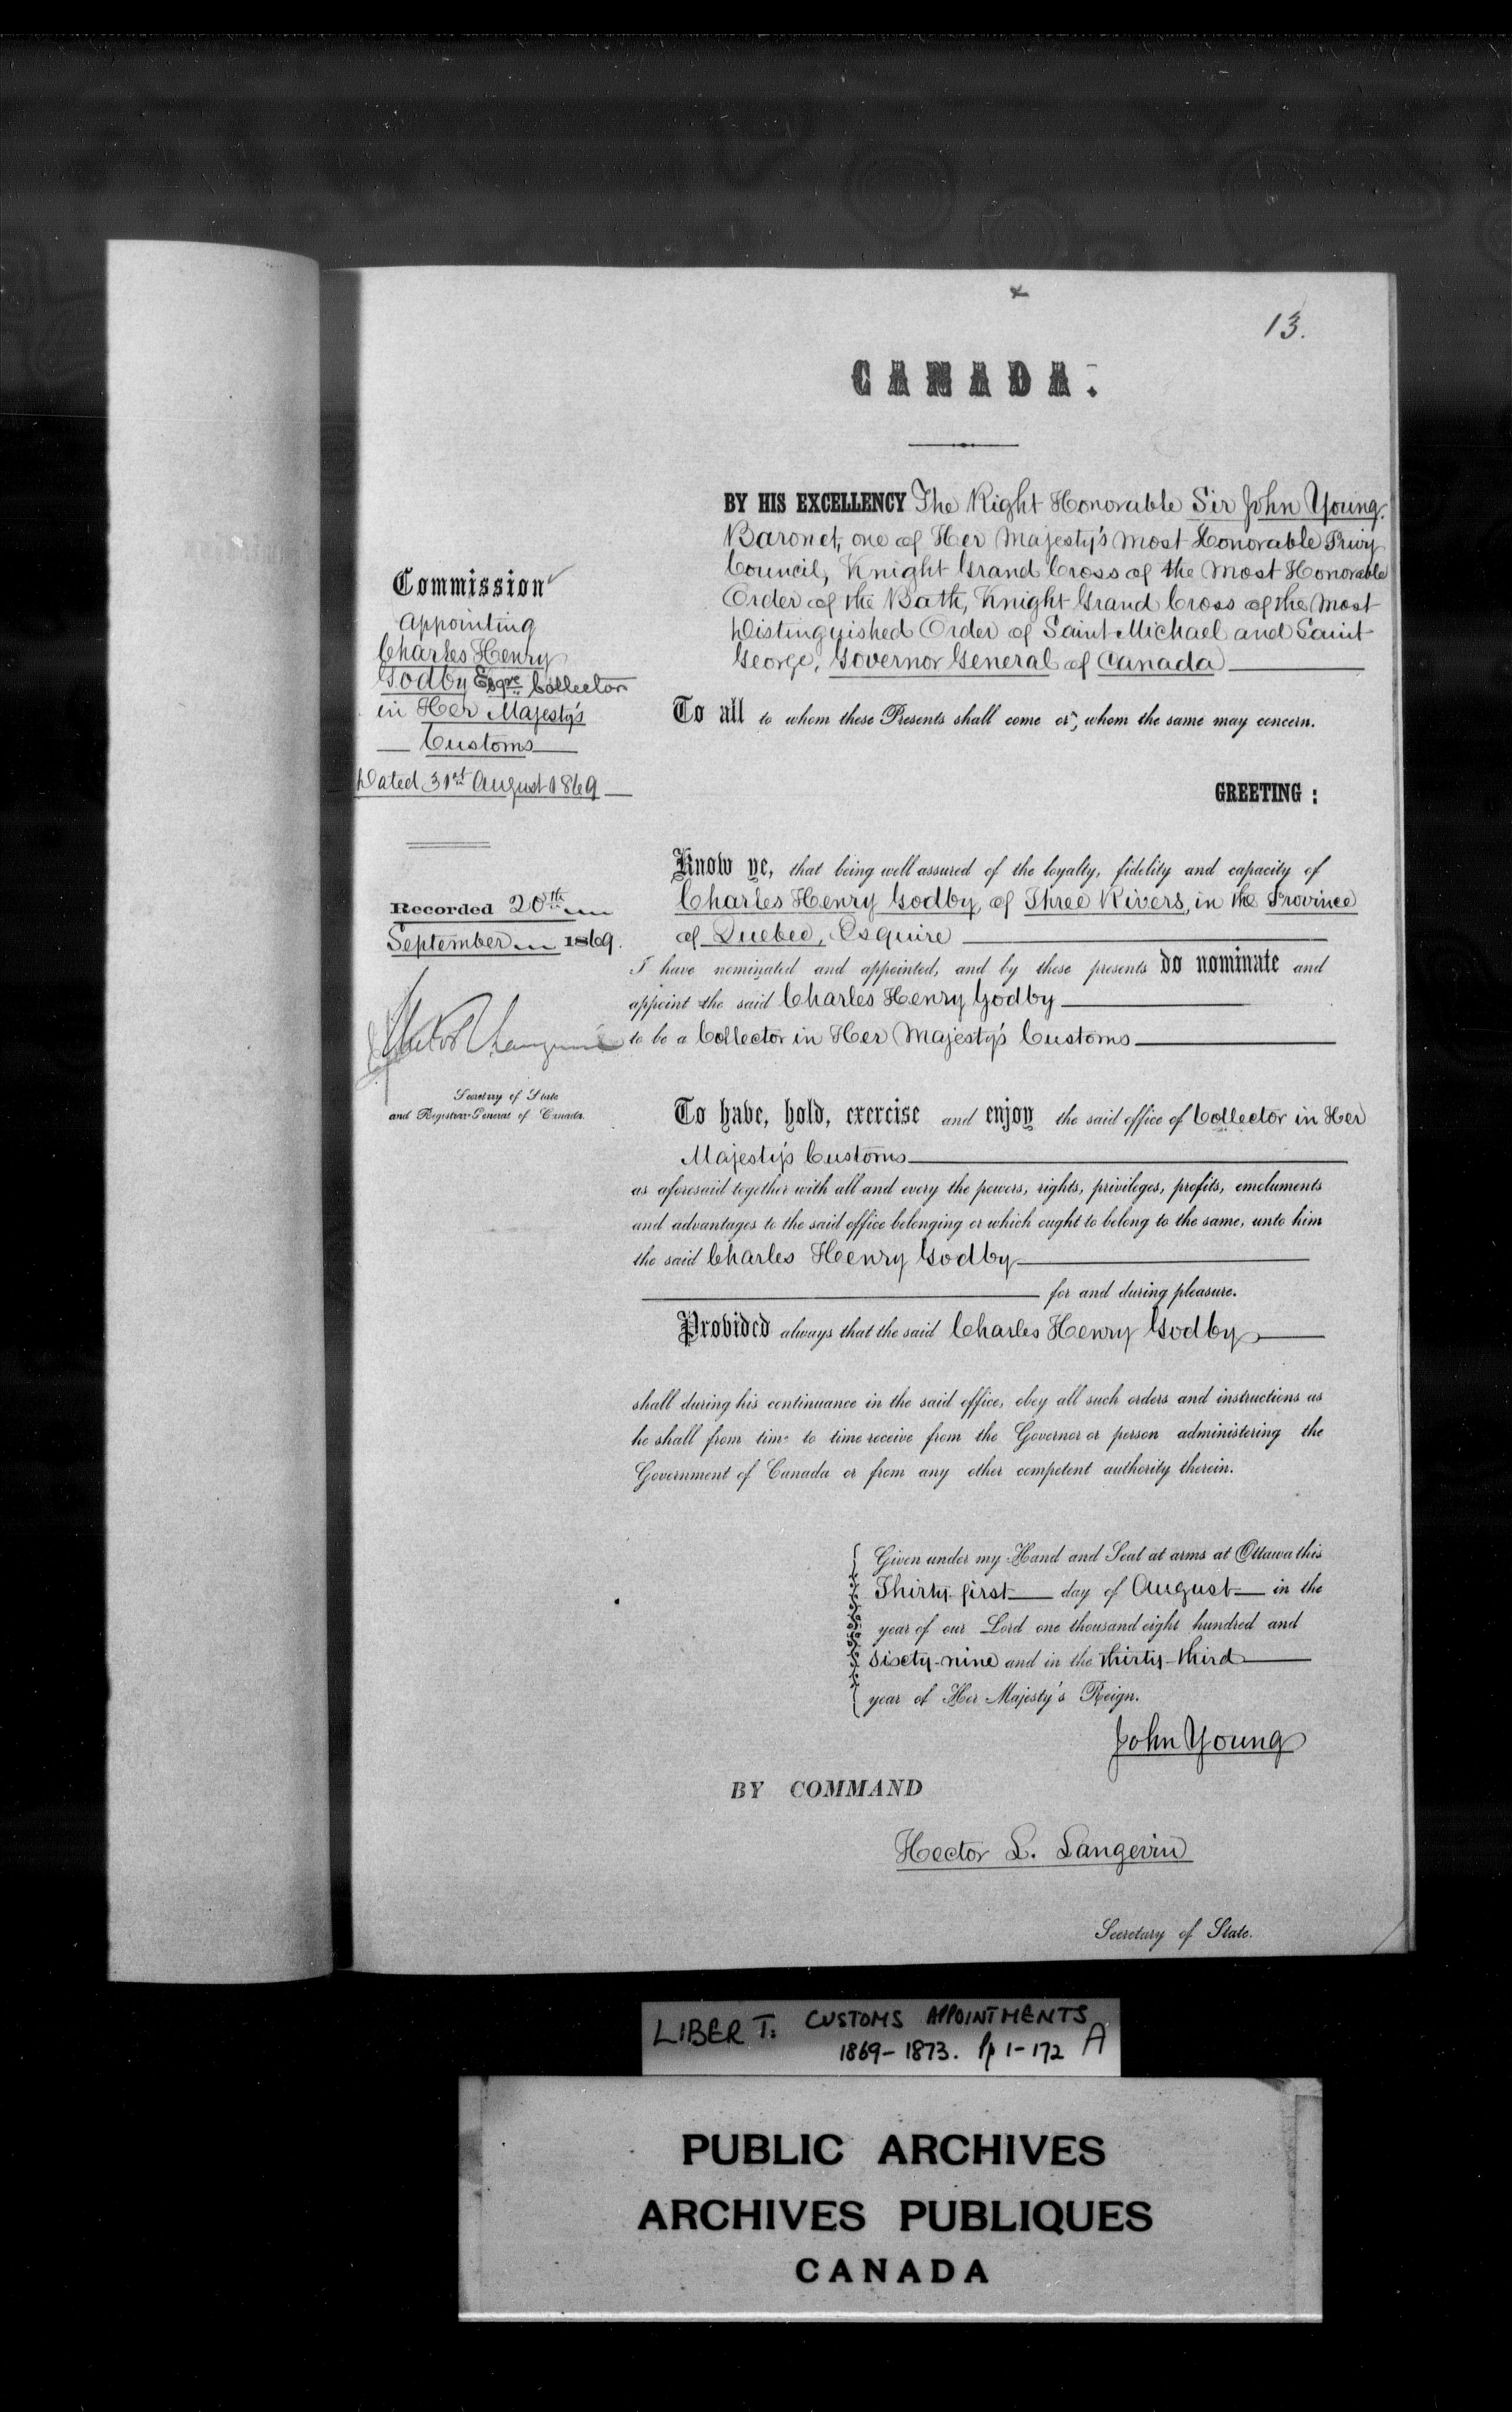 13.
CANADA.
BY HIS EXCELLENCY The Right Honorable Sir John Young,
Baronet, one of Her Majesty's Most Honorable Privy
Council, Knight Grand Cross of the Most Honorable
Order of the Bath, Knight Grand Cross of the Most
Distinguished Order of Saint Michael and Saint
George, Governor General of Canada
Commission
Appointing
Charles Henry
Godby Esqre Collector
in Her Majesty's
Customs
Dated 31st August 1869
Recorded 20th
September 1869.
Secretary of State
and Registrar General of Canada.
To all to whom these Presents shall come or, whom the same may concern.
GREETING :
Know ye, that being well assured of the loyalty, fidelity and capacity of
Charles Henry Godby, of Three Rivers, in the Province
of Quebec, Esquire
I have nominated and appointed, and by these presents do nominate and
appoint the said Charles Henry Godby
to be a Collector in Her Majesty's Customs
To have, hold, exercise and enjoy the said office of Collector in Her
Majesty's Customs
as aforesaid together with all and every the powers, rights, privileges, profits, emoluments
and advantages to the said office belonging or which ought to belong to the same, unto him
the said Charles Henry Godby
for and during pleasure.
Provided always that the said Charles Henry Godby
shall during his continuance in the said office, obey all such orders and instructions as
he shall from time to time receive from the Governor or person administering the
Government of Canada or from any other competent authority therein.
Given under my Hand and Seal at arms at Ottawa this
Thirty-first day of August in the
year of our Lord one thousand eight hundred and
sixty-nine and in the thirty-third
year of Her Majesty's Reign.
John Young
BY COMMAND
Hector L. Langevin
Secretary of State.
LIBER T. CUSTOMS APPOINTMENTS
1869-1873. Pp 1-172 A
PUBLIC ARCHIVES
ARCHIVES PUBLIQUES
CANADA